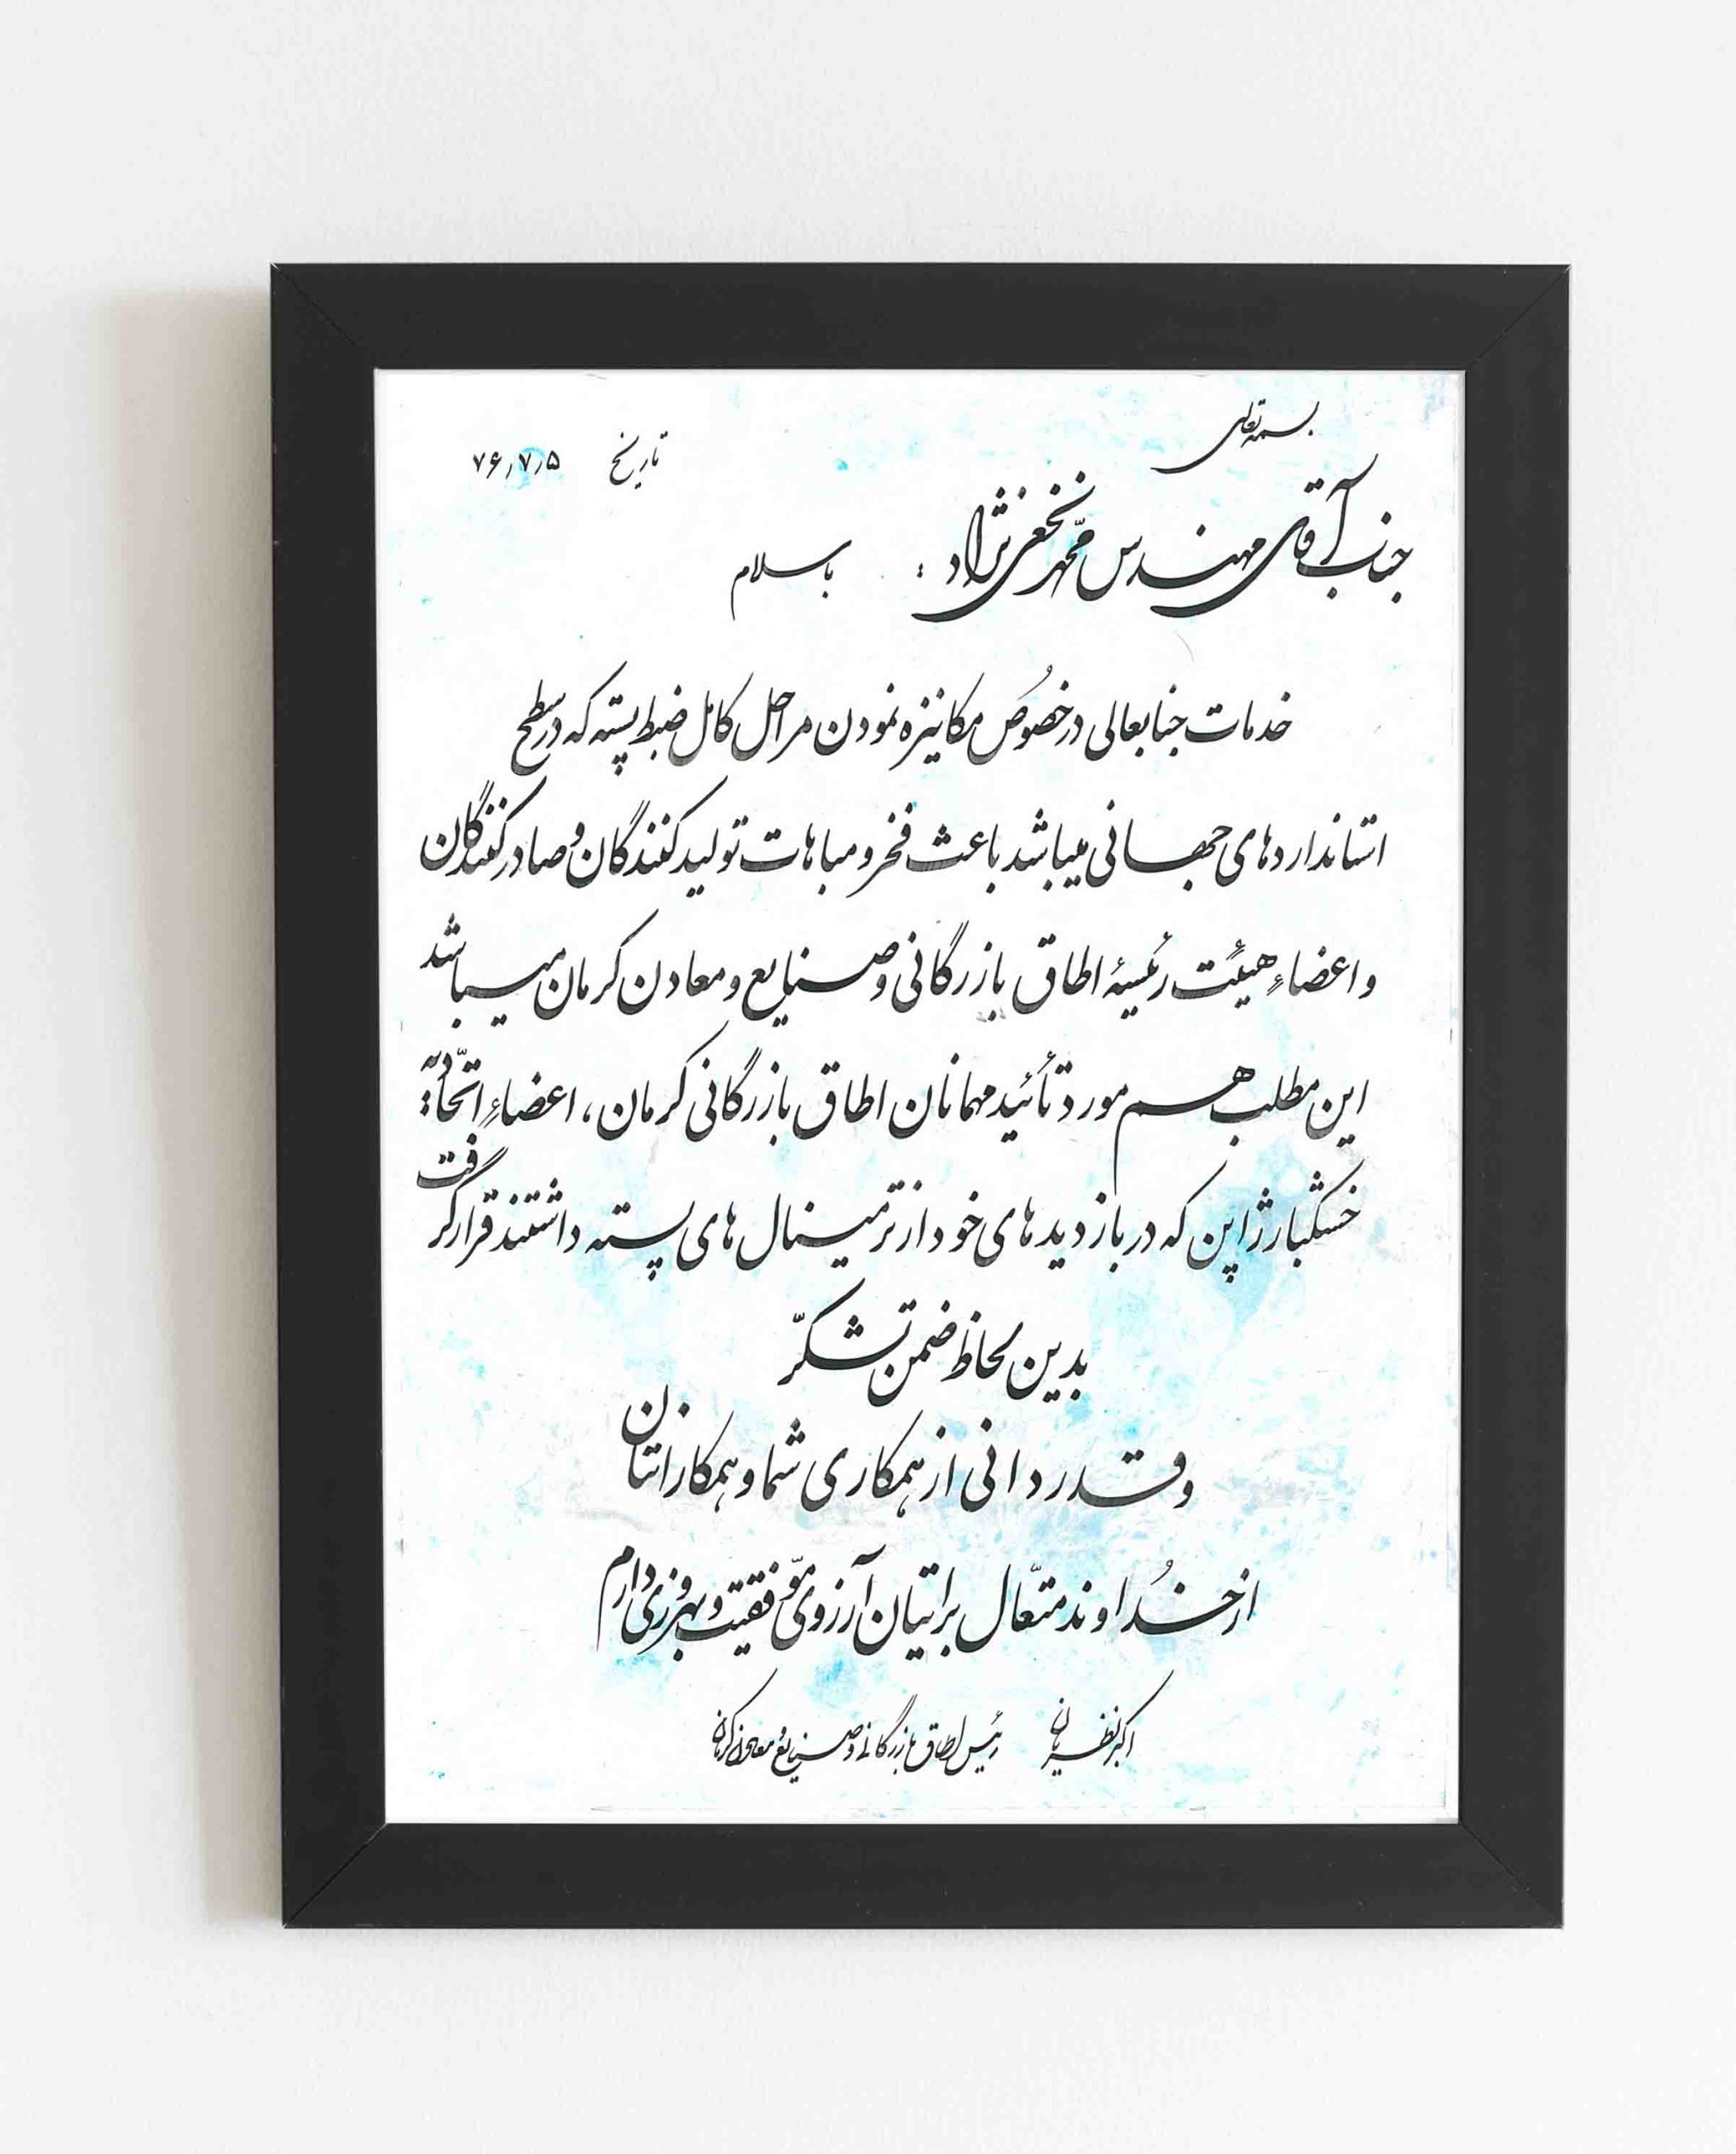 بسمه تعالی
تاریخ ۷۶/۷/۵
جناب آقای مهندس محمد نخعی نژاد : باسلام
خدمات جنابعالی در خصُوص مکانیزه نمودن مراحل کامل ضبط پسته که در سطح
استانداردهای جهانی میباشد باعث فخر و مباهات تولید کنندگان و صادرکنندگان
و اعضاءِ هیئت رئیسهٔ اطاق بازرگانی و صنایع و معادن کرمان میباشد
این مطلب هم مورد تأئید مهمانان اطاق بازرگانی کرمان، اعضاءِ اتّحادیّه
خشکبار ژاپن که در بازدیدهای خود از ترمینال های پسته داشتند قرار گرفت
بدین لحاظ ضمن تشکّر
و قدردانی از همکاری شما و همکارانتان
از خُداوند متعّال برایتان آرزوی موّفقیت و بهروزی دارم
اکبر نظریان رئیس اطاق بازرگانی و صنایع و معادن کرمان